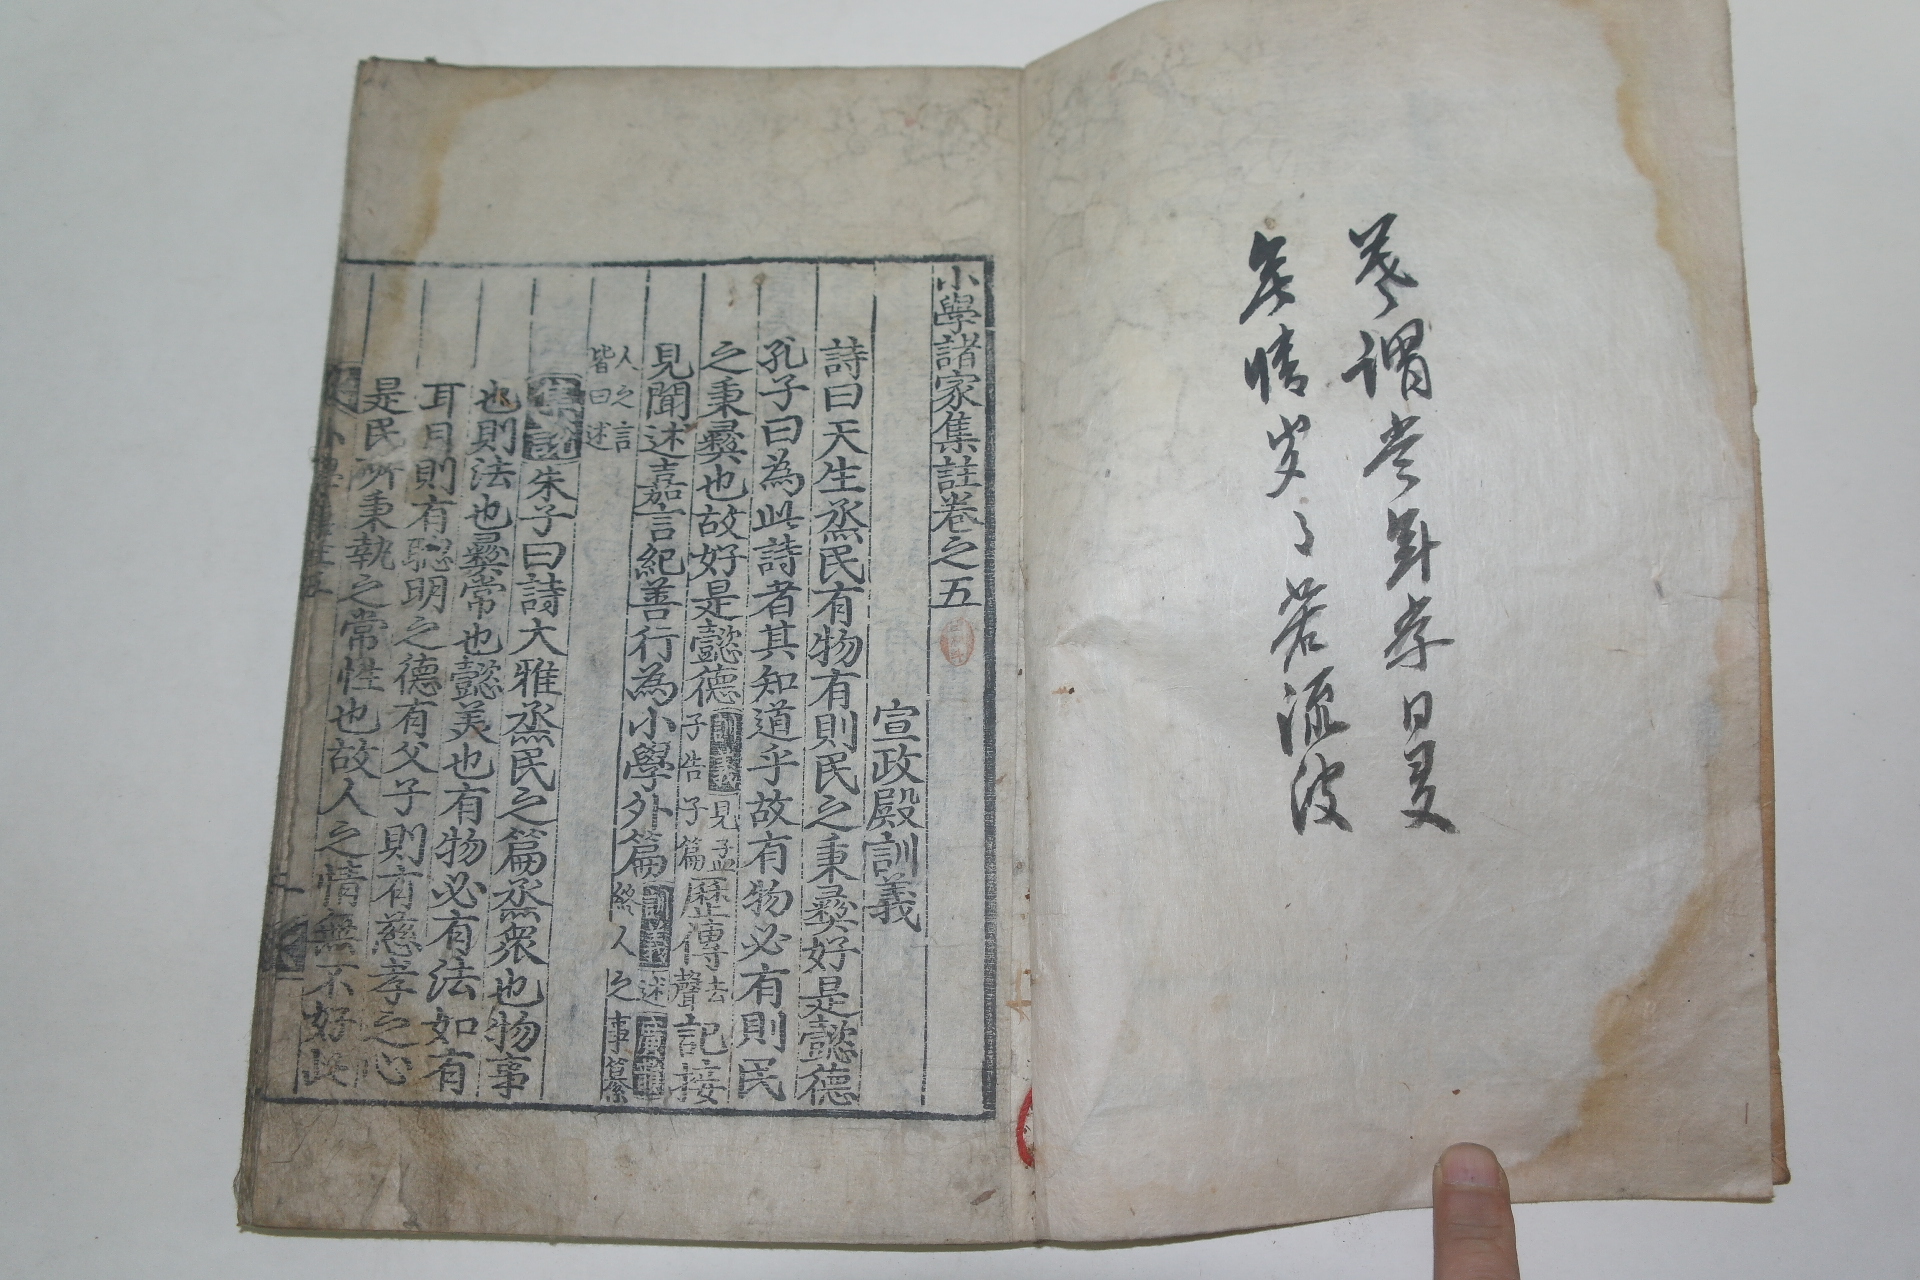 莫謂當年學日多
無情歲々若流波
小學諸家集註卷之五
宣政殿訓義
詩曰天生烝民有物有則民之秉彛好是懿德
孔子曰為此詩者其知道乎故有物必有則民
之秉彛也故好是懿德訓義見孟子告子篇歷傳去聲記接
見聞述嘉言紀善行為小學外篇訓義述
人之言皆曰述
集說朱子曰詩大雅烝民之篇烝衆也物事
也則法也彛常也懿美也有物必有法如有
耳目則有聰明之德有父子則有慈孝之心
是民所秉執之常性也故人之情無不好此